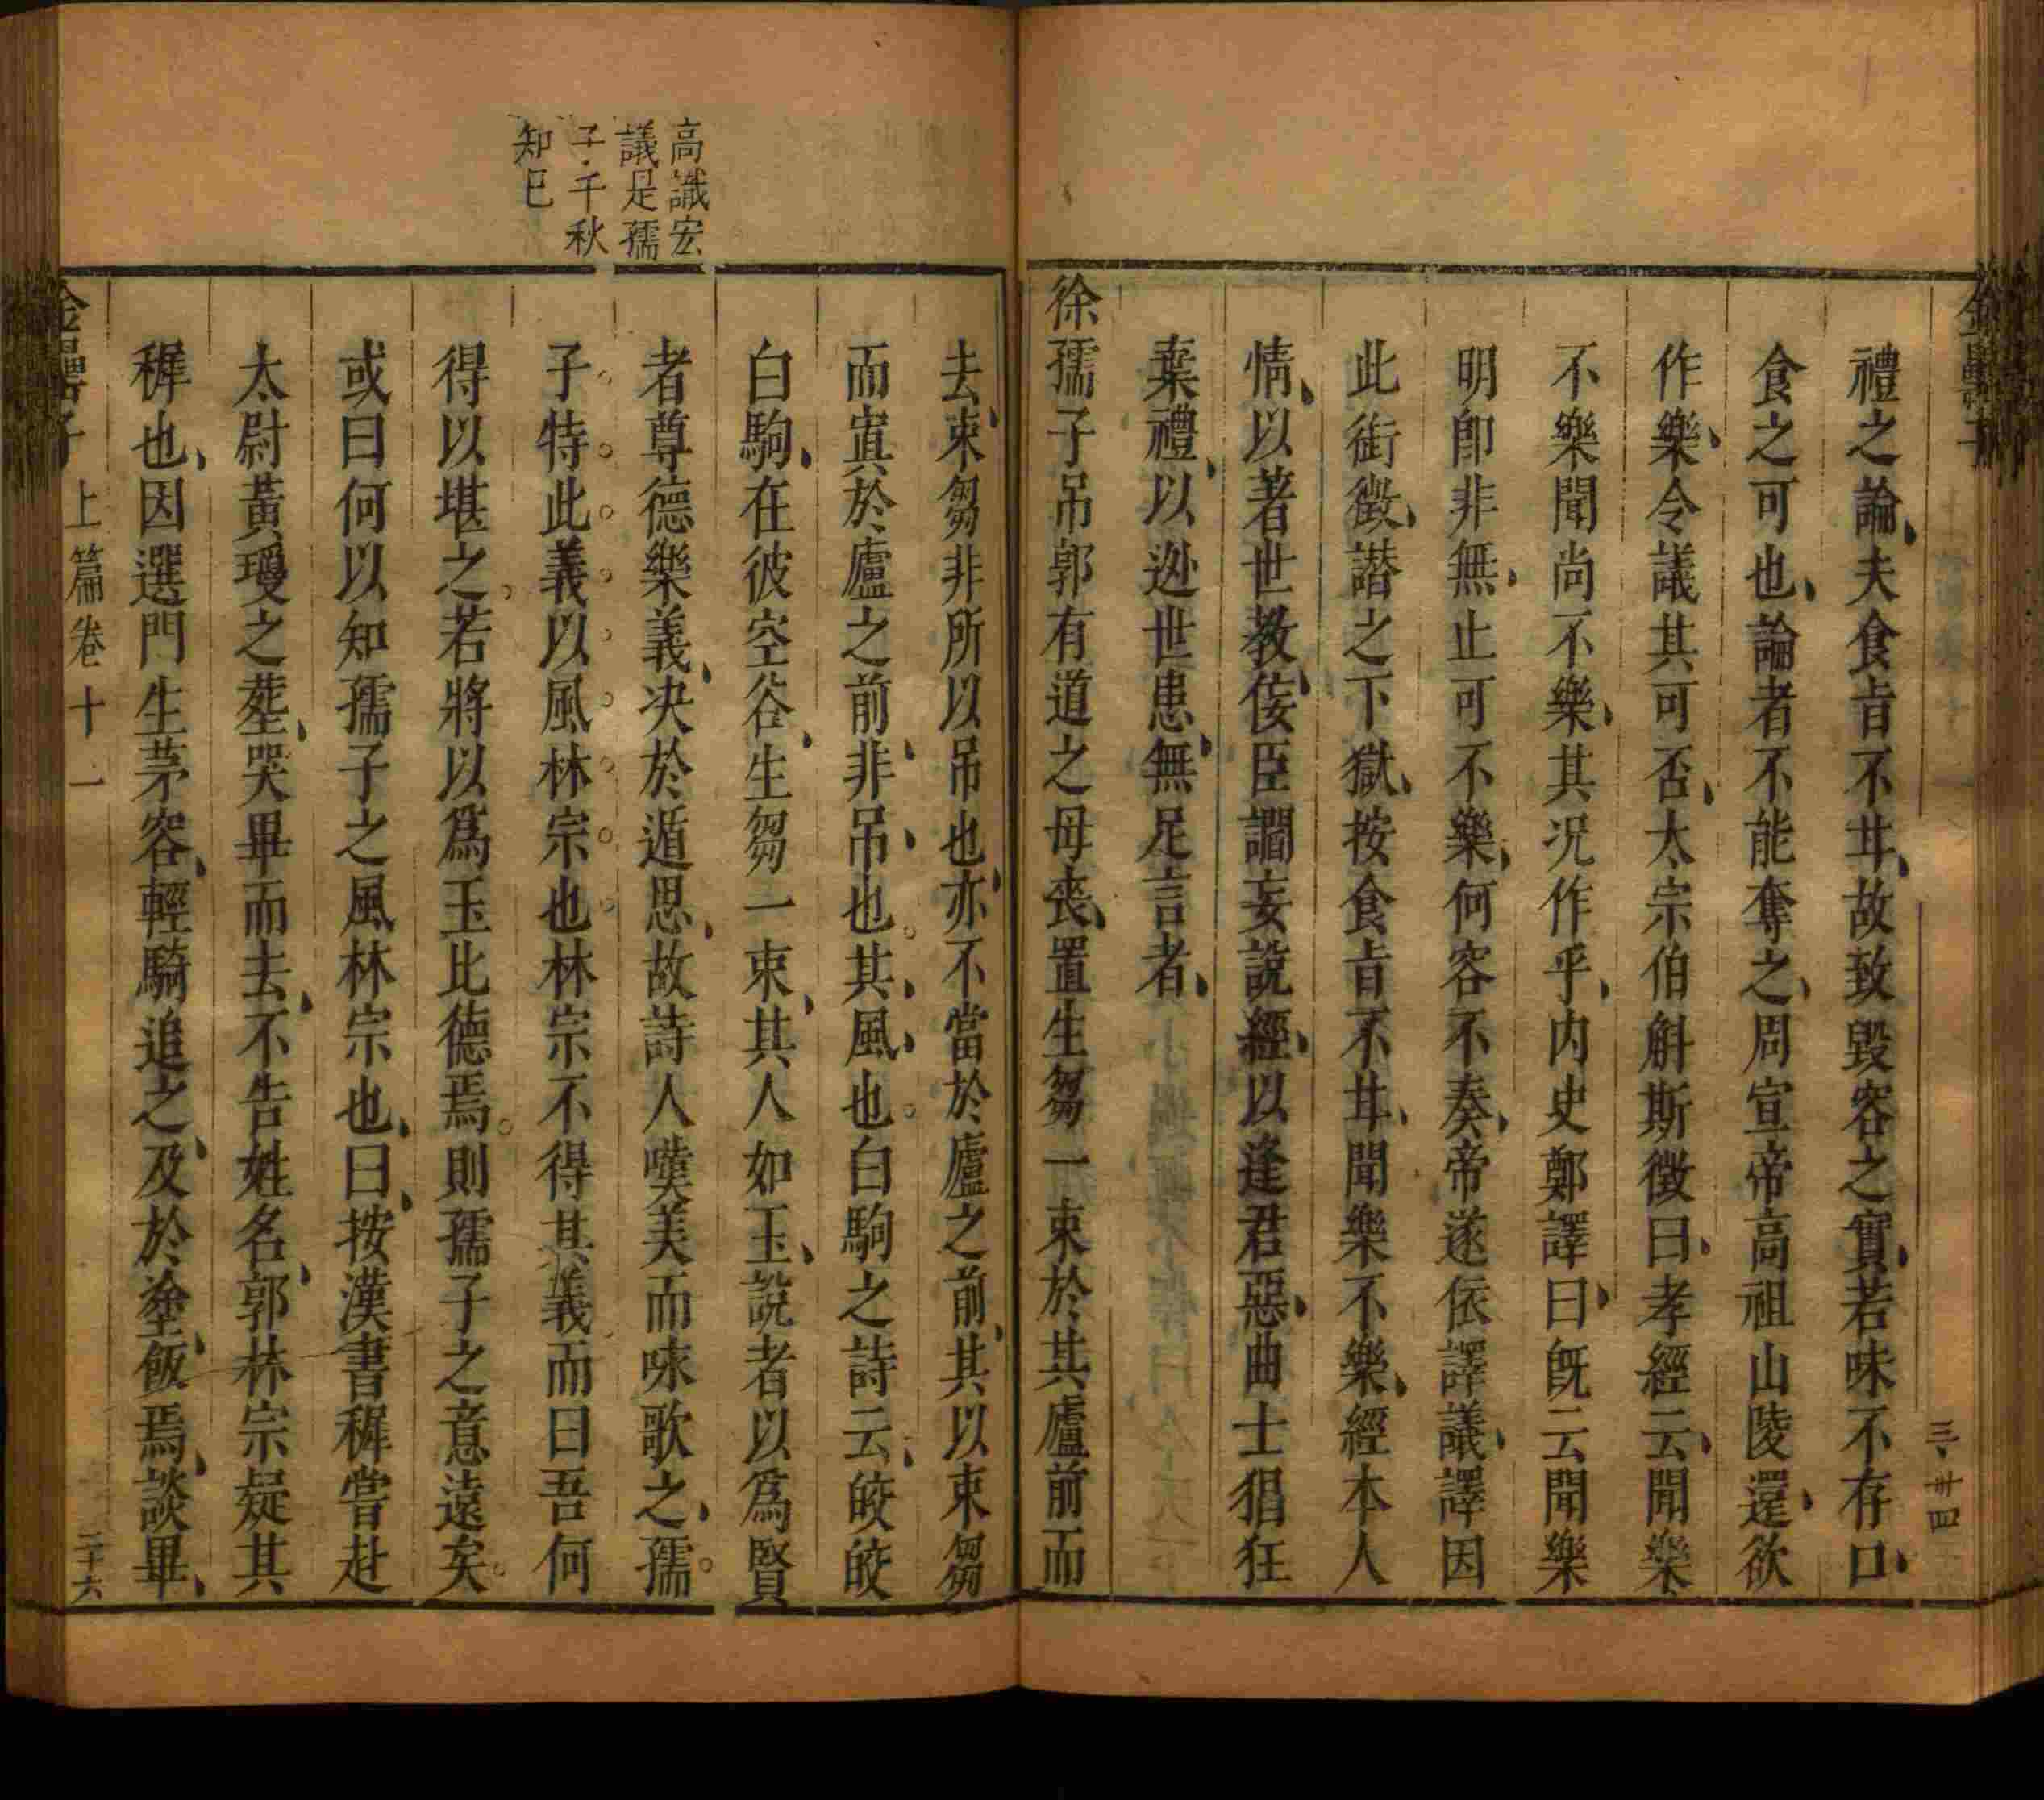 禮之論夫食旨不甘故致毀容之實若味不存口
食之可也論者不能奪之周宣帝高祖山陵還欲
作樂令議其可否太宗伯斛斯徵曰孝經云聞樂
不樂聞尚不樂其况作乎内史鄭譯曰旣云聞樂
明卽非無止可不樂何容不奏帝遂依譯議譯因
此銜徵譖之下獄按食旨不甘聞樂不樂經本人
情以著世教佞臣讇妄說經以逢君惡曲士猖狂
棄禮以迯世患無足言者
徐孺子吊郭有道之母喪置生芻一束於其廬前而
去束芻非所以吊也亦不當於廬之前其以束芻
而寘於廬之前非吊也其風也白駒之詩云皎皎
白駒在彼空谷生芻一束其人如玉說者以爲賢
者尊德樂義决於遁思故詩人嘆美而咏歌之孺
子特此義以風林宗也林宗不得其義而曰吾何
得以堪之若將以爲玉比德焉則孺子之意遠矣
或曰何以知孺子之風林宗也曰按漢書穉嘗赴
太尉黃瓊之塟哭畢而去不告姓名郭林宗疑其
穉也因選門生茅容輕騎追之及於塗飯焉談畢
高識宏
議足孺
子千秋
知巳
金罍子
上篇卷十一
二十六
金罍子
三卅四